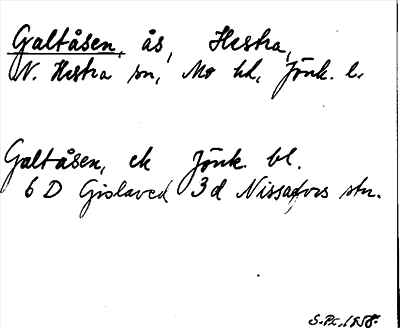 Galtåsen, ås, Hestra,
N. Hestra sn, Mo hd, Jönk. l.
Galtåsen, ek Jönk. bl.
6 D Gislaved 3 d Nissafors stn.
S.Px, 1958.